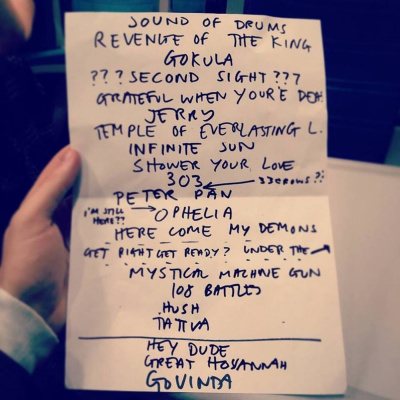 SOUND OF DRUMS
REVENGE OF THE KING
GOKULA
???SECOND SIGHT???
GRATEFUL WHEN YOUR'E DEAD
JERRY
TEMPLE OF EVERLASTING L.
INFINITE SUN
SHOWER YOUR LOVE
303 ← 33CROWS??
PETER PAN
I'M STILL HERE?? → OPHELIA
HERE COME MY DEMONS
GET RIGHT GET READY? UNDER THE
MYSTICAL MACHINE GUN
108 BATTLES
HUSH
TATTVA
HEY DUDE
GREAT HOSSANNAH
GOVINDA